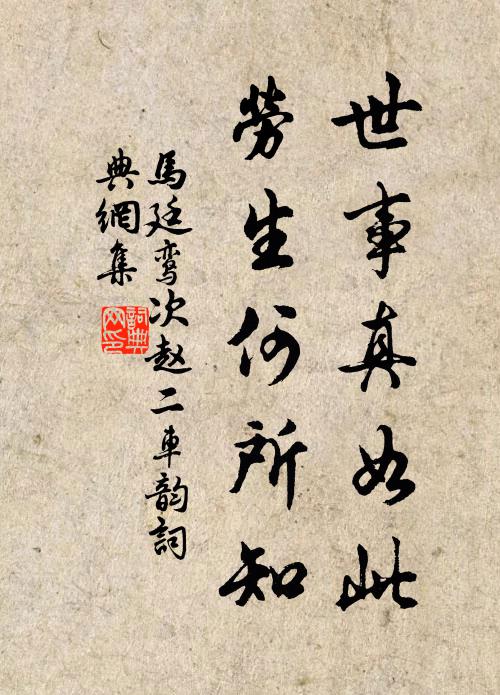 世事真如此
劳生何所知
馬廷鸾次赵二車韵詞
典網集
詞典网印